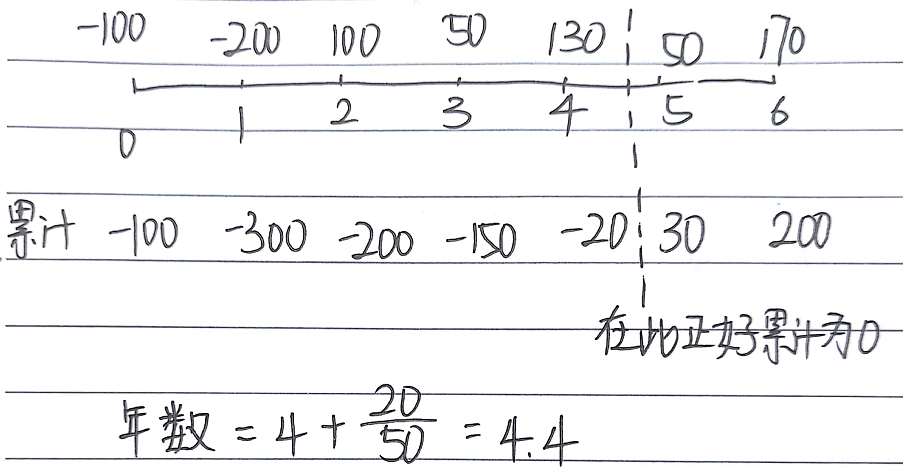 -100 -200 100 50 130 50 170
0 1 2 3 4 5 6
累计 -100 -300 -200 -150 -20 30 200
在此正好累计为0
年数 = 4 + 20/50 = 4.4